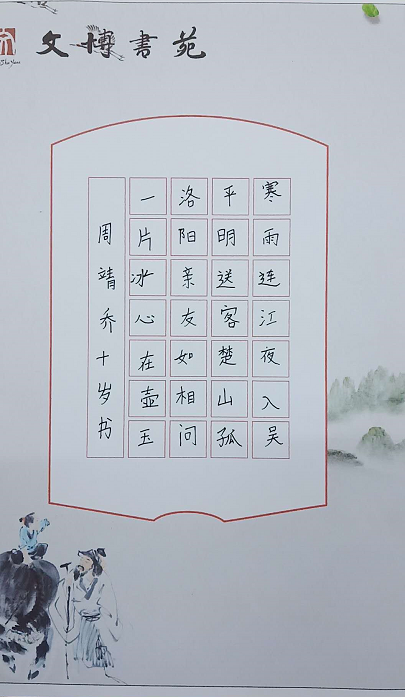 文博書苑
寒雨连江夜入吴
平明送客楚山孤
洛阳亲友如相问
一片冰心在壶玉
周靖乔十岁书